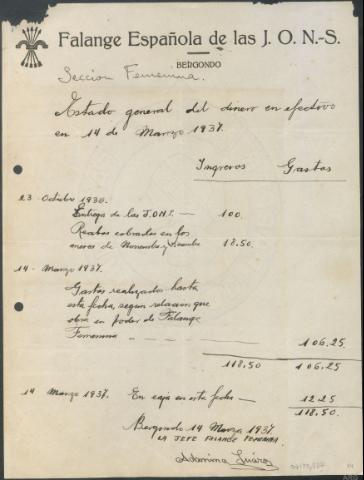 Falange Española de las J. O. N.-S.
BERGONDO
Sección Femenina.
Estado general del dinero en efectivo
en 14 de Marzo 1937.
Ingresos Gastos
23 - Octubre 1936.
Entrega de las J.O.N.S. — 100.
cobrados en los
meses de Noviembre y 18.50.
14 - Marzo 1937.
Gastos realizados hasta
esta fecha, segun relacion que
obra en poder de Falange
Femenina — — — — 106.25.
118.50 106.25
14 Marzo 1937. En caja en esta fecha — 12.25
118.50.
Bergondo 14 Marzo 1937.
LA JEFE FALANGE FEMENINA
Suárez